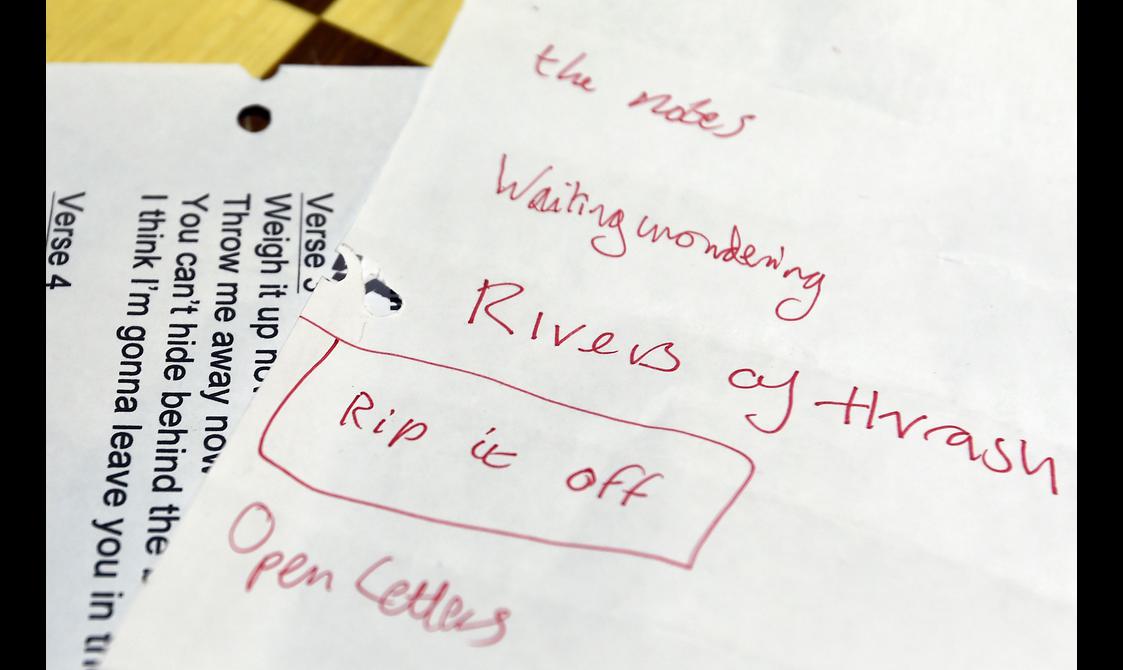 the notes
Waiting wondering
Rivers of thrash
Rip it off
Open Letters
Verse 3
Weigh it up
Throw me away now
You can't hide behind the
I think I'm gonna leave you in
Verse 4